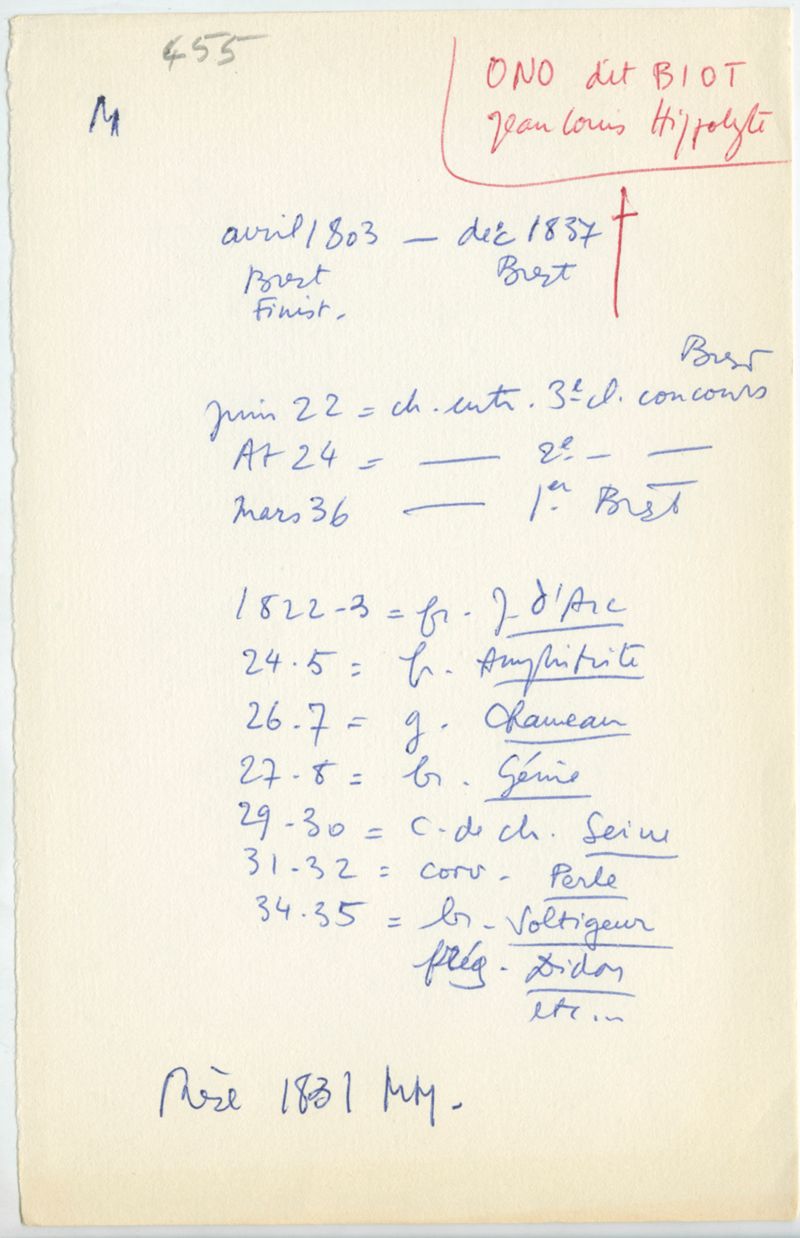 455
M
ONO dit BIOT
Jean Louis Hippolyte
avril 1803 — déc 1837 †
Brest Brest
Finist.
Brest
Juin 22 = ch. entr. 3e cl. concours
At 24 = — 2e — —
Mars 36 — 1er Brest
1822-3 = fr. J. d'Arc
24.5 = fr. Amphitrite
26.7 = g. Chameau
27-8 = br. Génie
29-30 = C. de ch. Seine
31-32 = corv. Perle
34.35 = br. Voltigeur
frég. Didon
etc...
Thèse 1831 MM.